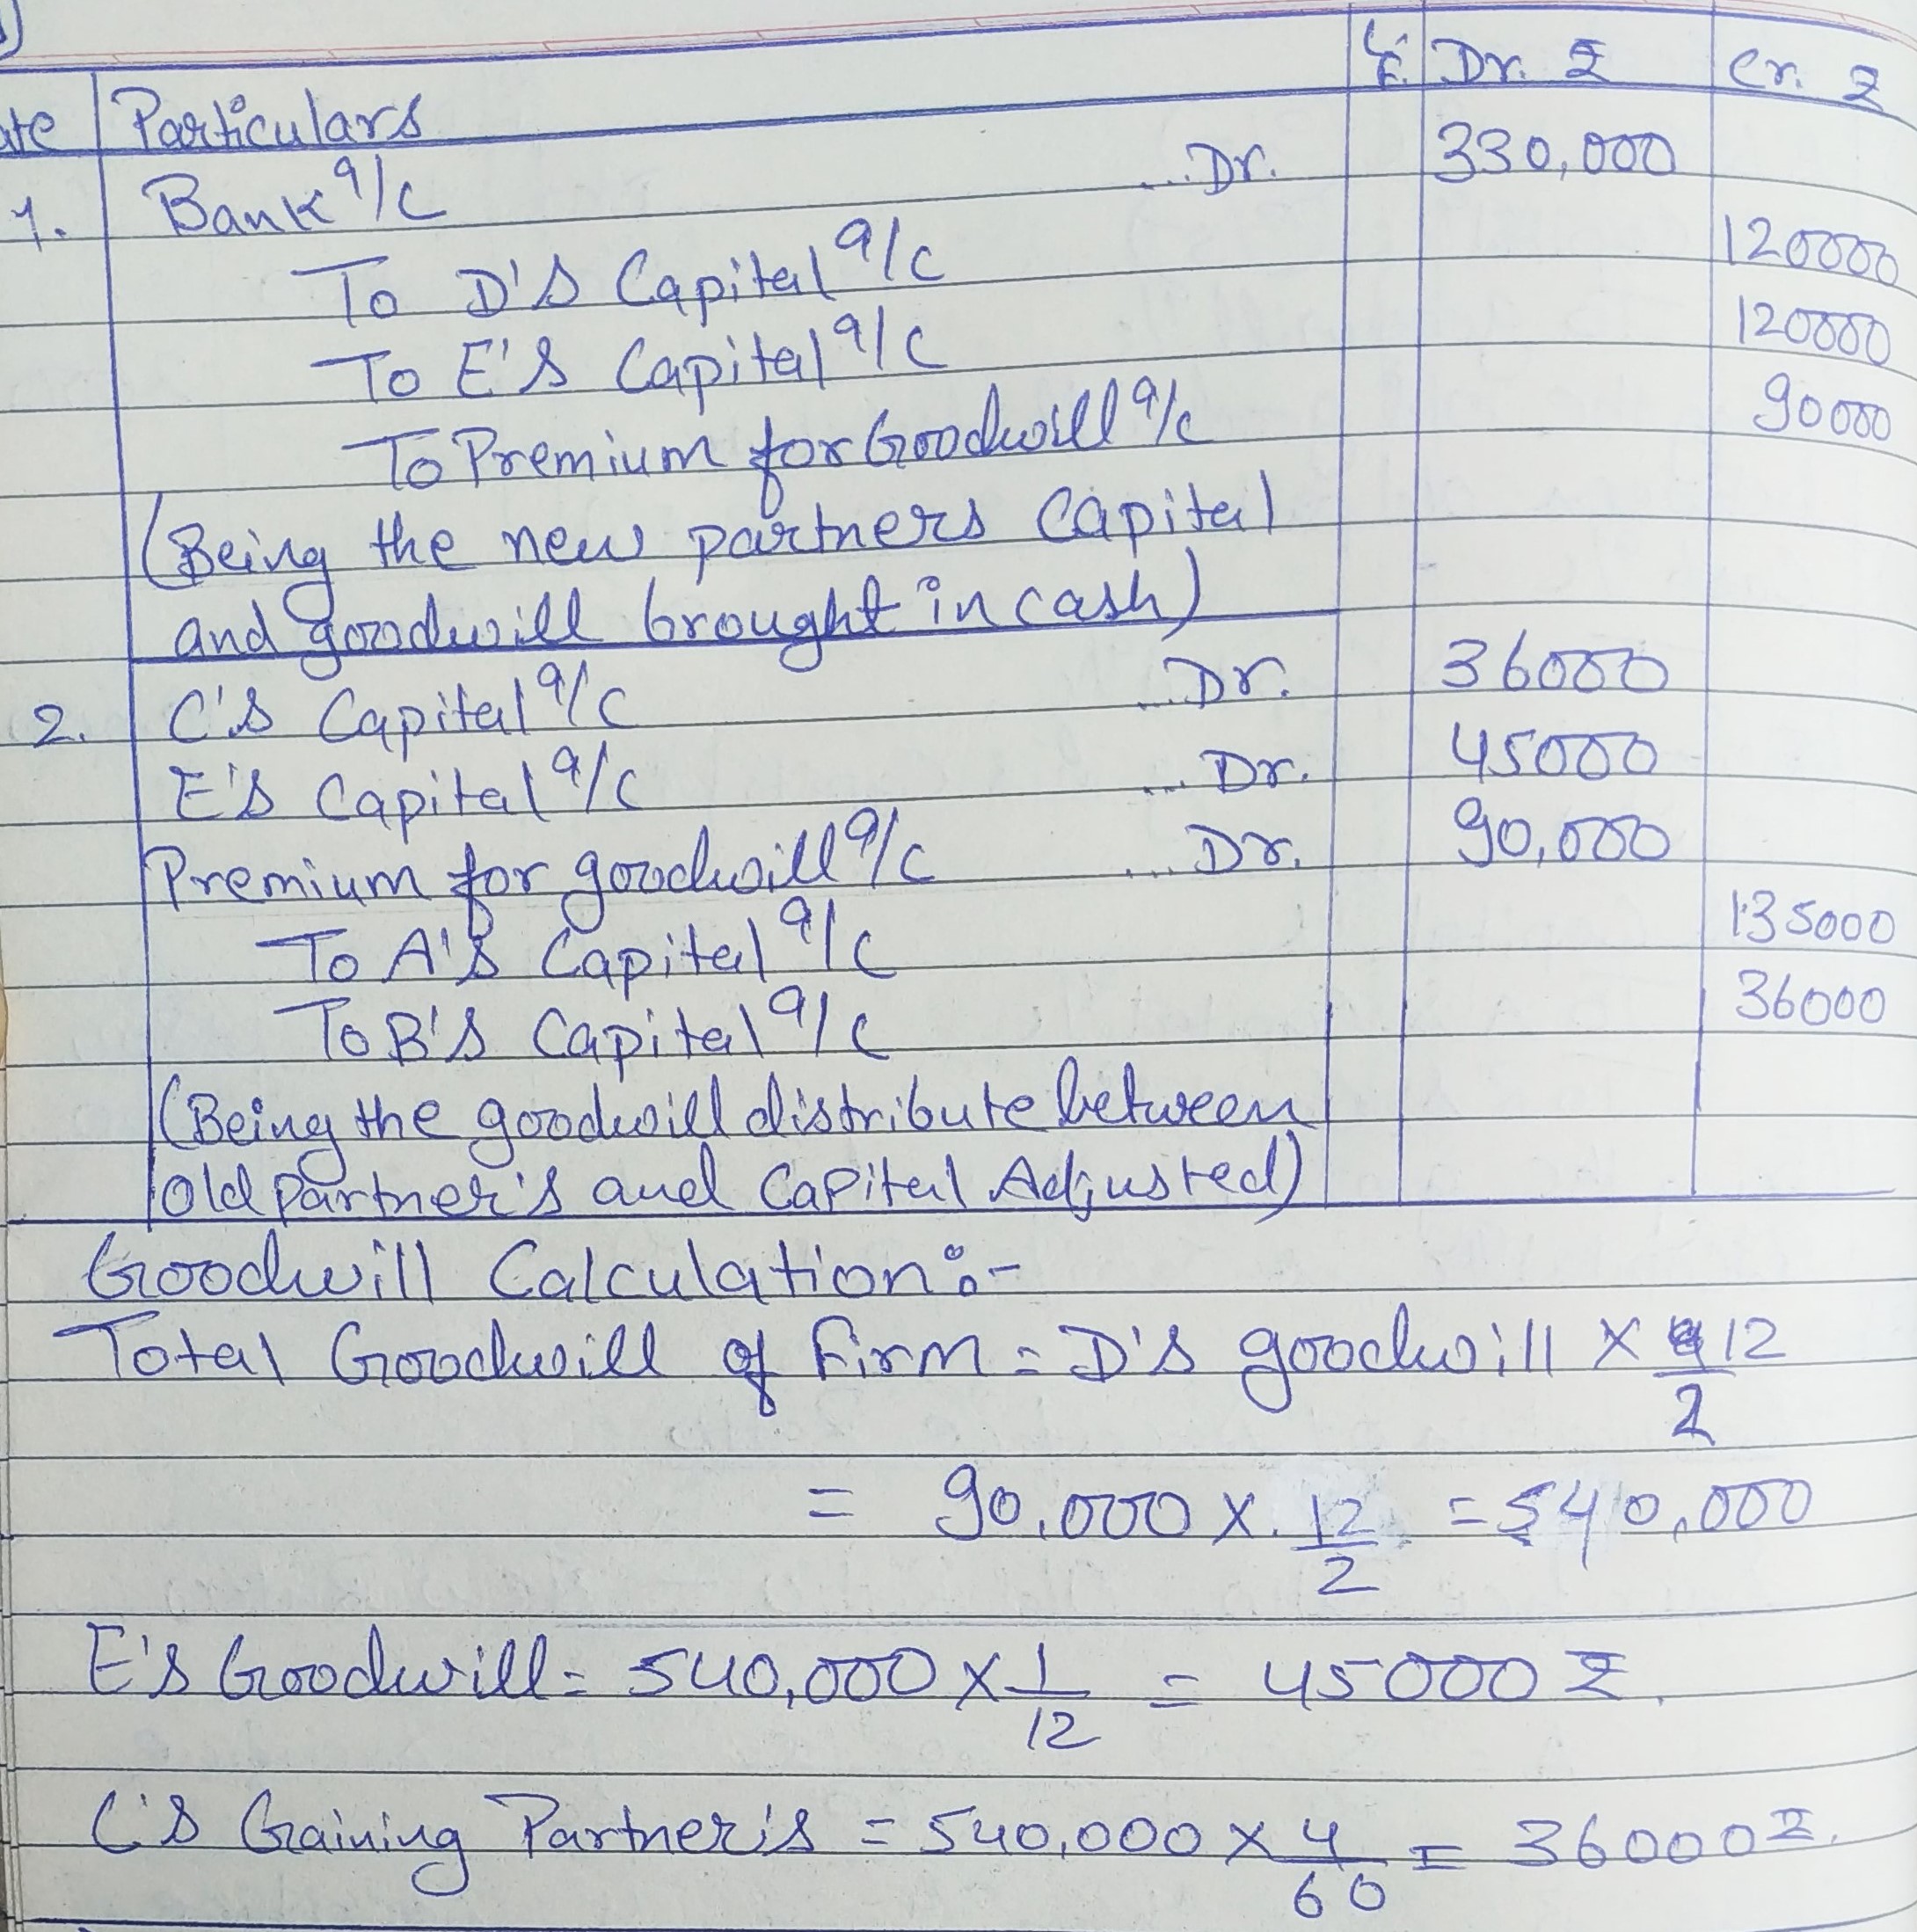 ate Particulars L.F. Dr. ₹ Cr. ₹
1. Bank a/c ...Dr. 330,000
To D's Capital a/c 120000
To E's Capital a/c 120000
To Premium for Goodwill a/c 90000
(Being the new partners Capital
and goodwill brought in cash)
2. C's Capital a/c ...Dr. 36000
E's Capital a/c ...Dr. 45000
Premium for goodwill a/c ...Dr. 90,000
To A's Capital a/c 135000
To B's Capital a/c 36000
(Being the goodwill distribute between
old partner's and Capital Adjusted)
Goodwill Calculation:-
Total Goodwill of Firm = D's goodwill × 12/2
= 90,000 × 12/2 = 540,000
E's Goodwill = 540,000 × 1/12 = 45000 ₹.
C's Gaining Partner's = 540,000 × 4/60 = 36000 ₹.